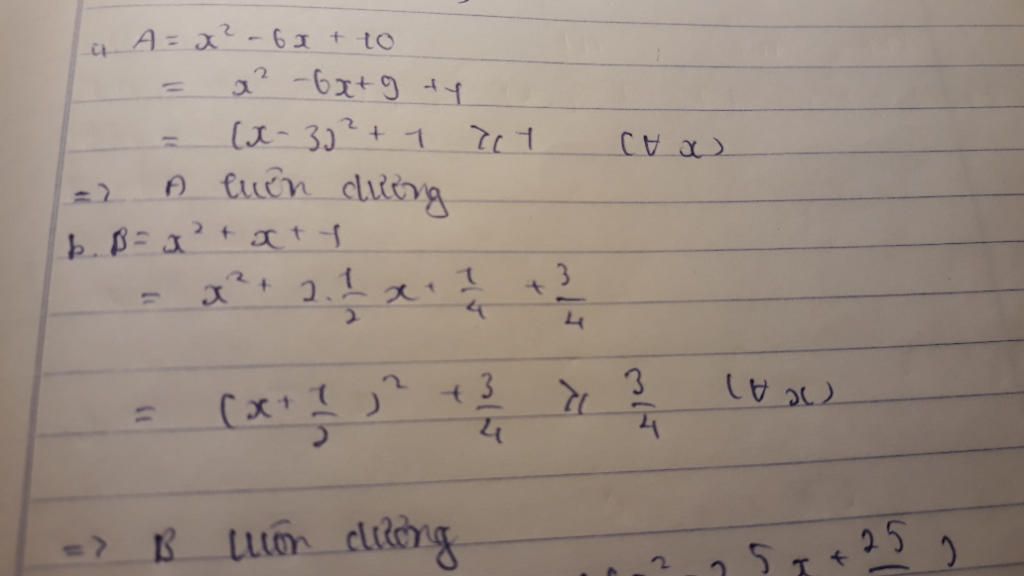 a, A = x² - 6x + 10
= x² - 6x + 9 + 1
= (x - 3)² + 1 ≥ 1 (∀ x)
=> A luôn dương
b. B = x² + x + 1
= x² + 2.1/2 x + 1/4 + 3/4
= (x + 1/2)² + 3/4 ≥ 3/4 (∀ x)
=> B luôn dương
5x + 25